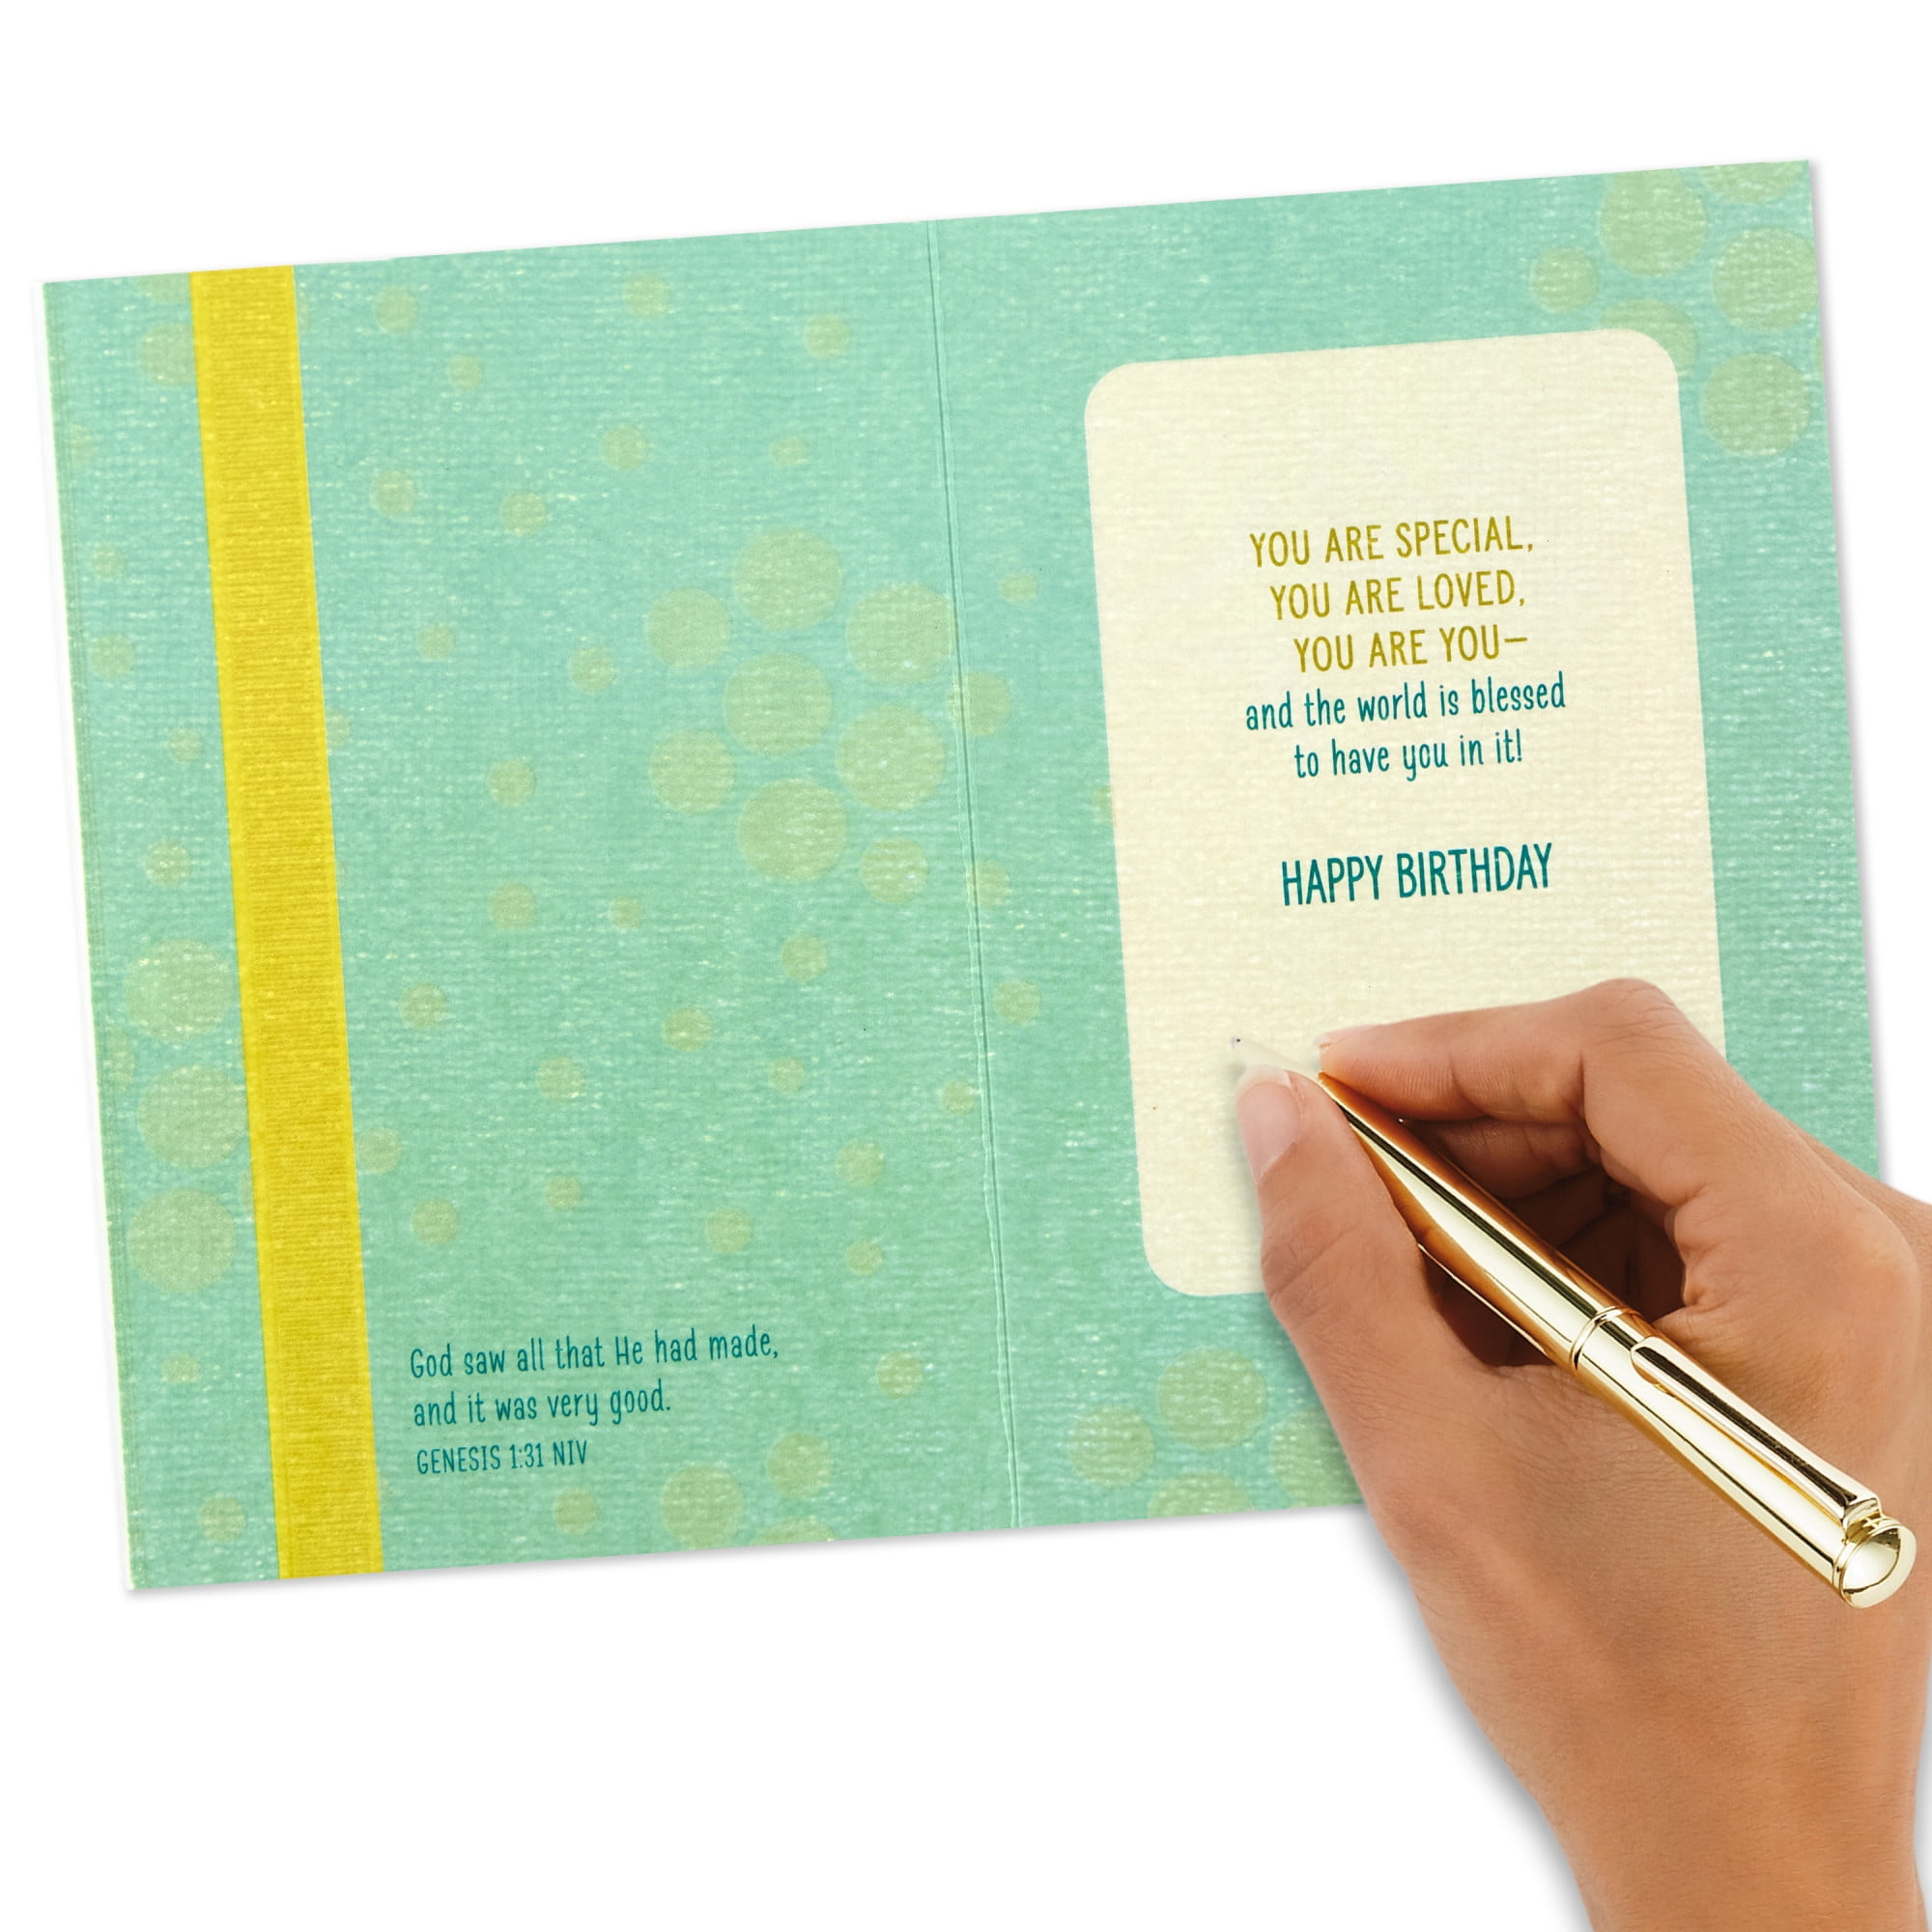 God saw all that He had made,
and it was very good.
GENESIS 1:31 NIV
YOU ARE SPECIAL,
YOU ARE LOVED,
YOU ARE YOU—
and the world is blessed
to have you in it!
HAPPY BIRTHDAY